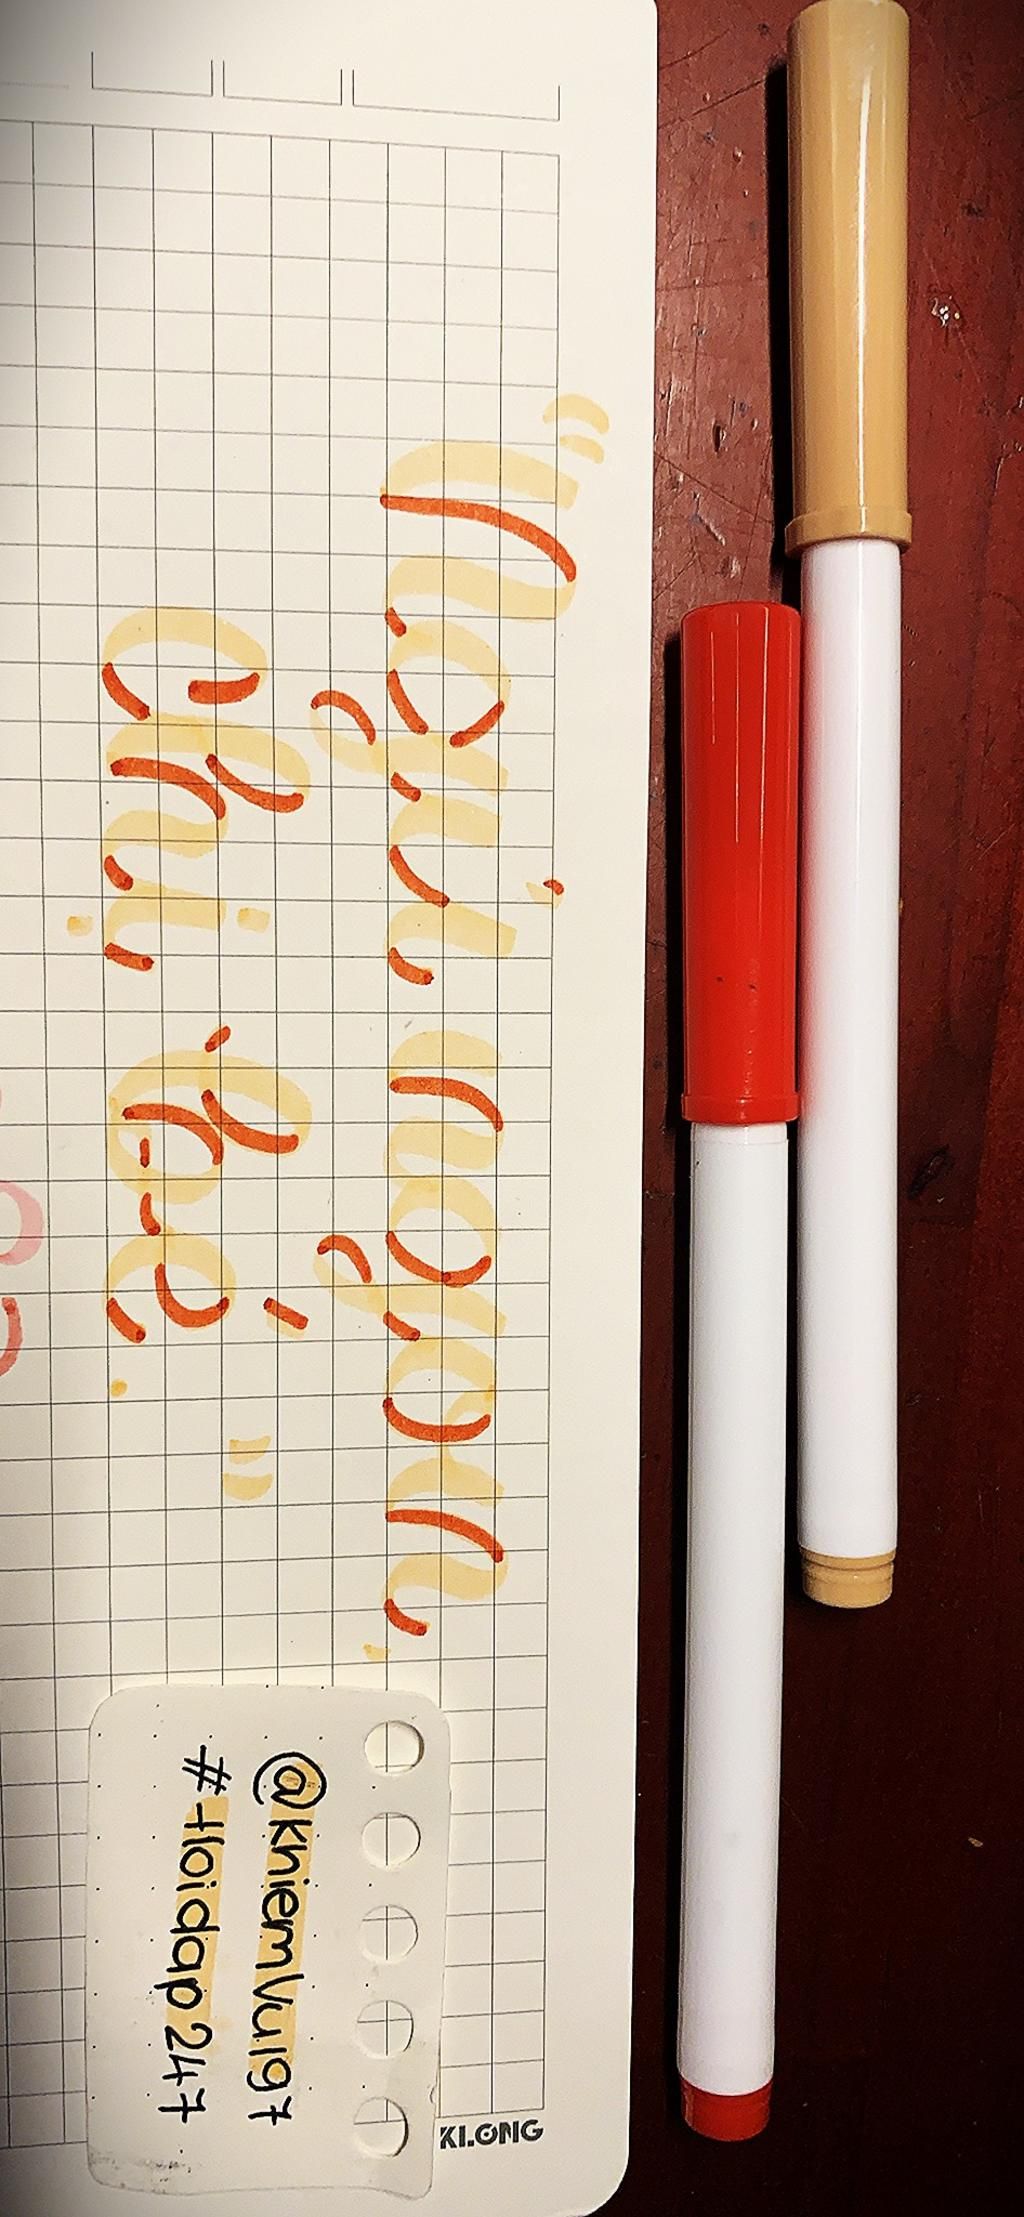 "Ngủ ngon,
chị bé."
@khiemVu197
#Hoidap247
KLONG